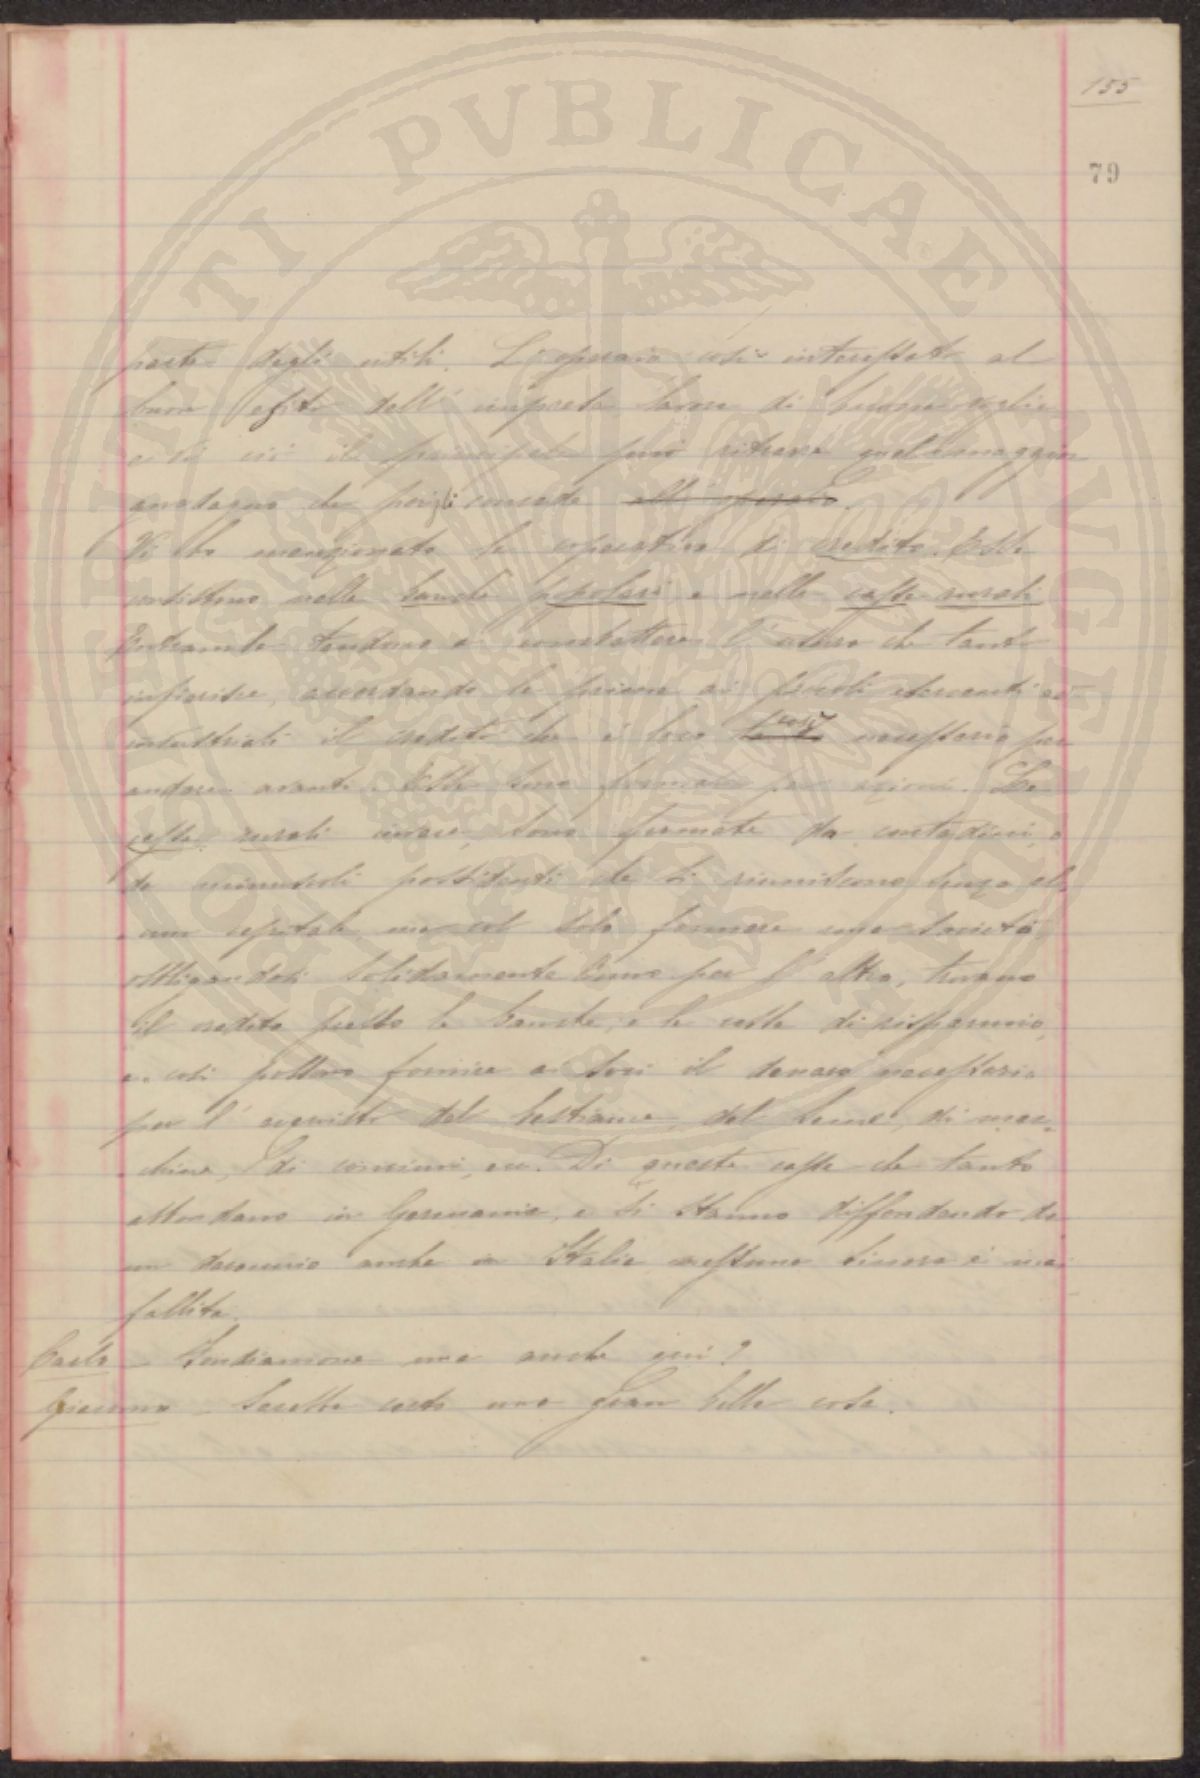 155
79
parte degli utili. L'operaio così interessato al
buon esito dell'impresa lavora di buona voglia
e da ciò il principale può ritrarre quel maggior
guadagno che poi gli concede all'operaio.
Vi ho menzionato le cooperative di credito. Esse
consistono nelle banche popolari e nelle casse rurali
Entrambe tendono a combattere l'usura che tanto
infierisce, accordando le prime ai piccoli esercenti ed
industriali il credito che è loro così necessario per
andare avanti. Esse sono formate per azioni. Le
casse rurali invece, sono formate da contadini, e
da minuscoli possidenti che si riuniscono senza al-
cun capitale, ma col solo formare una società,
obbligandosi solidarmente l'uno per l'altro, trovano
il credito presso le banche, e le casse di risparmio,
e così possono fornire ai soci il denaro necessario
per l'acquisto del bestiame, del seme, di mac-
chine, di concimi, ecc. Di queste casse che tanto
abbondano in Germania, e si stanno diffondendo da
un decennio anche in Italia nessuna finora è mai
fallita.
Carlo - Fondiamone una anche qui?
Giacomo - Sarebbe certo una gran bella cosa.
PVBLICAE